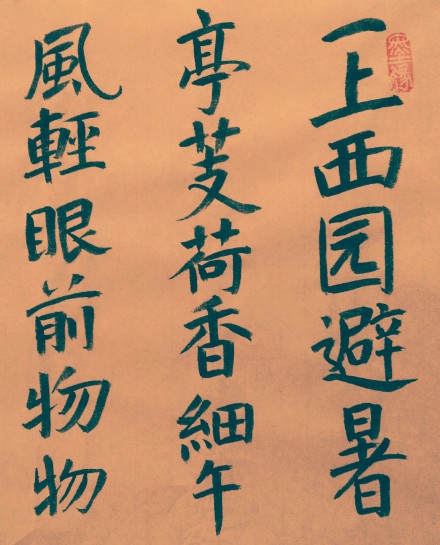 一上西园避暑
亭芰荷香細午
風輕眼前物物